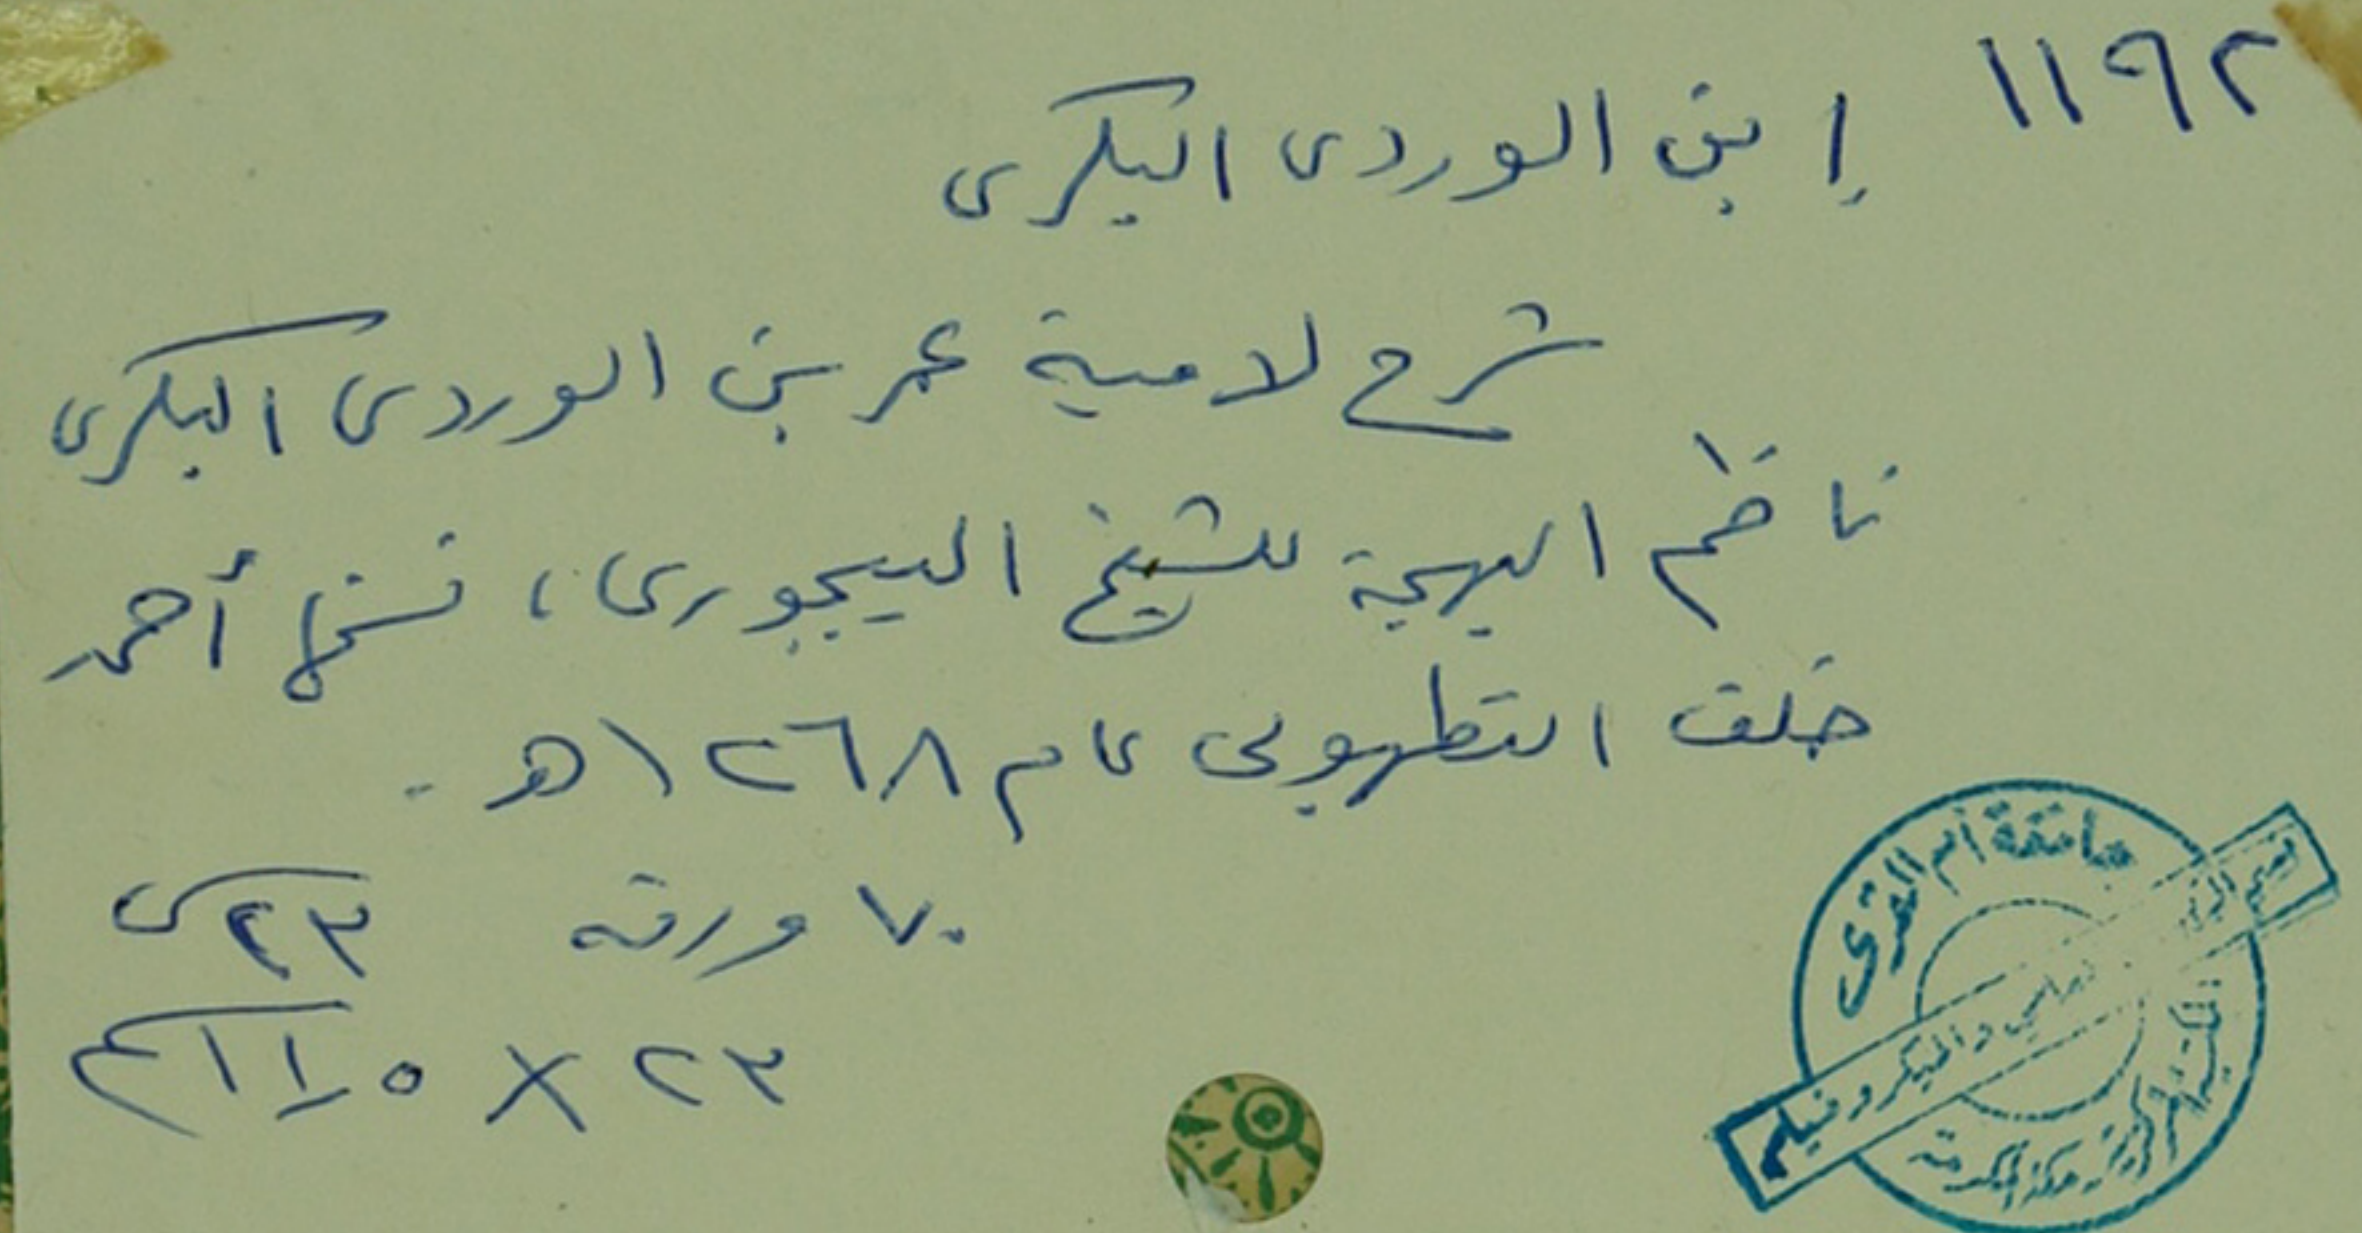 ١١٩٢
إبن الوردى البكرى
شرح لامية عمر بن الوردى البكرى
ناظم البهجة للشيخ البيجورى، نسخها أحمد
خلف التطهوبى عام ١٢٦٨هـ.
٧٠ ورقة ٢٣س
٢٣ × ١٦٫٥سم
جامعة أم القرى
والميكروفيلم